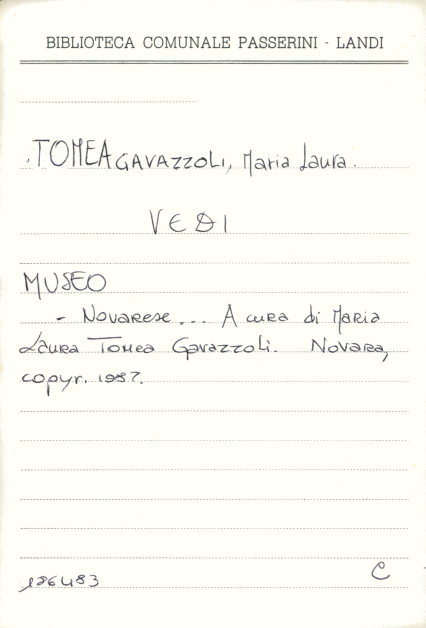 BIBLIOTECA COMUNALE PASSERINI - LANDI
TOMEA GAVAZZOLI, Maria Laura.
VEDI
MUSEO
- Novarese... A cura di Maria
Laura Tomea Gavazzoli. Novara,
copyr. 1987.
C